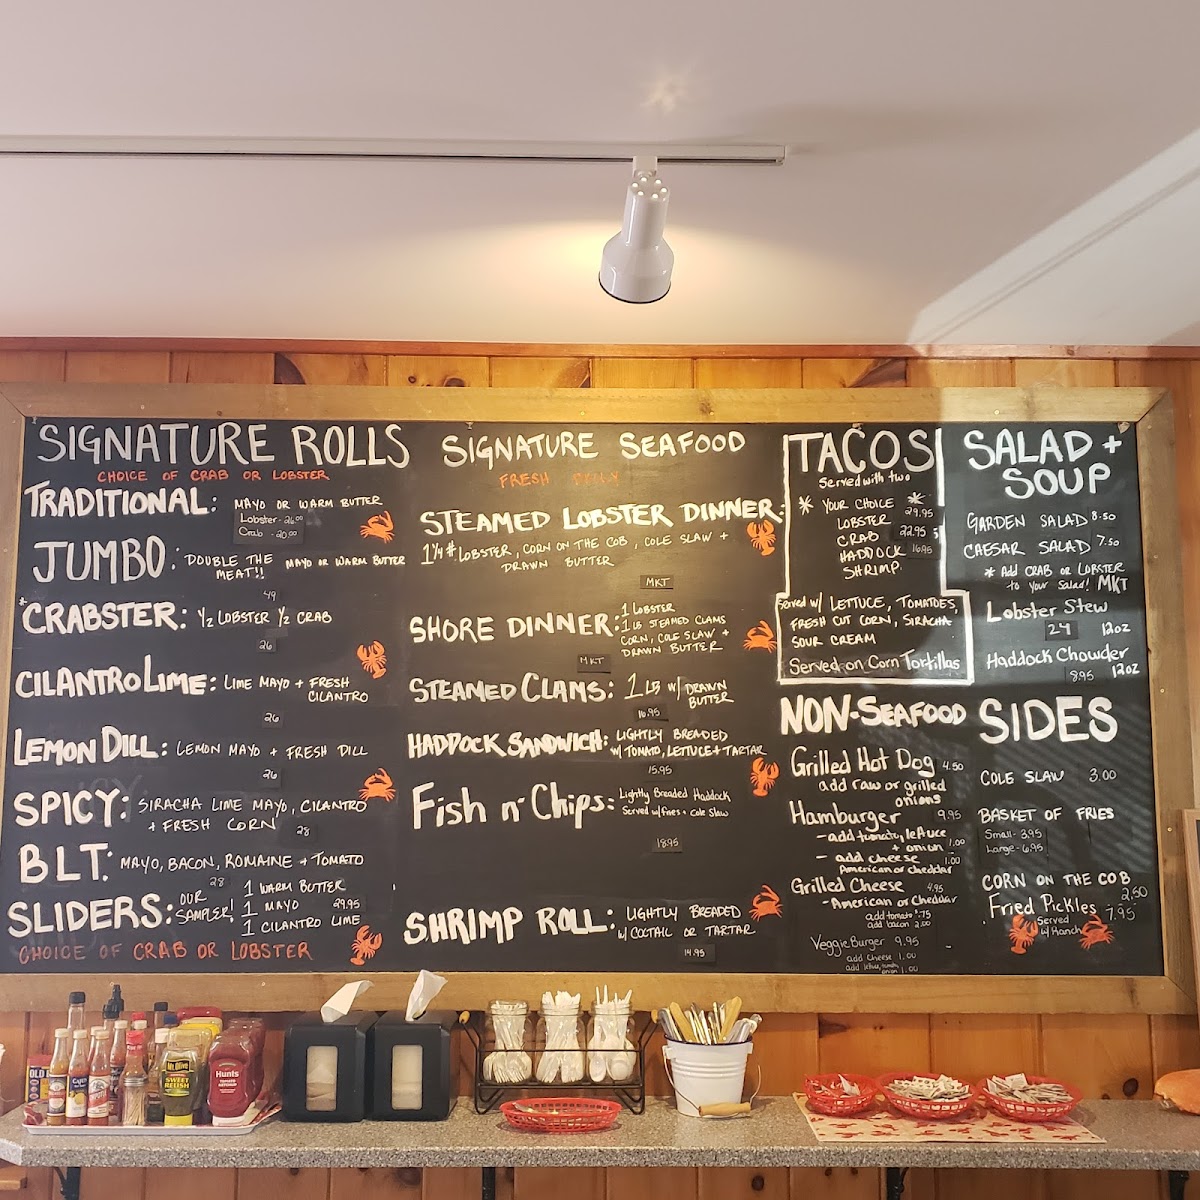 SIGNATURE ROLLS
CHOICE OF CRAB OR LOBSTER
TRADITIONAL: MAYO OR WARM BUTTER
Lobster - 26.00
Crab - 20.00
JUMBO: DOUBLE THE MEAT!! MAYO OR WARM BUTTER
49
*CRABSTER: 1/2 LOBSTER 1/2 CRAB
26
CILANTRO LIME: LIME MAYO + FRESH
CILANTRO
26
LEMON DILL: LEMON MAYO + FRESH DILL
26
SPICY: SIRACHA LIME MAYO, CILANTRO
+ FRESH CORN
28
BLT: MAYO, BACON, ROMAINE + TOMATO
28
SLIDERS: OUR SAMPLER!
1 WARM BUTTER
1 MAYO 29.95
1 CILANTRO LIME
CHOICE OF CRAB OR LOBSTER
SIGNATURE SEAFOOD
FRESH
STEAMED LOBSTER DINNER:
1 1/4 # LOBSTER, CORN ON THE COB, COLE SLAW +
DRAWN BUTTER
MKT
SHORE DINNER: 1 LOBSTER
1 LB STEAMED CLAMS
CORN, COLE SLAW +
DRAWN BUTTER
MKT
STEAMED CLAMS: 1 LB W/ DRAWN
BUTTER
16.95
HADDOCK SANDWICH: LIGHTLY BREADED
W/ TOMATO, LETTUCE + TARTAR
15.95
Fish n' Chips: Lightly Breaded Haddock
Served w/ fries + Cole Slaw
18.95
SHRIMP ROLL: LIGHTLY BREADED
W/ COCTAIL OR TARTAR
14.95
TACOS
Served with two
* YOUR CHOICE *
LOBSTER 29.95
CRAB 22.95
HADDOCK 16.95
SHRIMP
Served w/ LETTUCE, TOMATOES,
FRESH CUT CORN, SIRACHA
SOUR CREAM
Served on Corn Tortillas
NON-SEAFOOD
Grilled Hot Dog 4.50
add raw or grilled
onions
Hamburger 9.95
- add tomato, lettuce
+ onion 1.00
- add cheese 1.00
American or cheddar
Grilled Cheese 4.95
- American or Cheddar
add tomato .75
add bacon 2.00
Veggie Burger 9.95
add cheese 1.00
add lettuce, tomato,
onion 1.00
SALAD +
SOUP
GARDEN SALAD 8.50
CAESAR SALAD 7.50
* Add CRAB OR LOBSTER
to your Salad! MKT
Lobster Stew
24 12oz
Haddock Chowder
8.95 12oz
SIDES
COLE SLAW 3.00
BASKET OF FRIES
Small - 3.95
Large - 6.95
CORN ON THE COB
2.50
Fried Pickles - 7.95
Served
w/ Ranch
OLD
Mt. Olive
SWEET
RELISH
Hunt's
TOMATO
KETCHUP